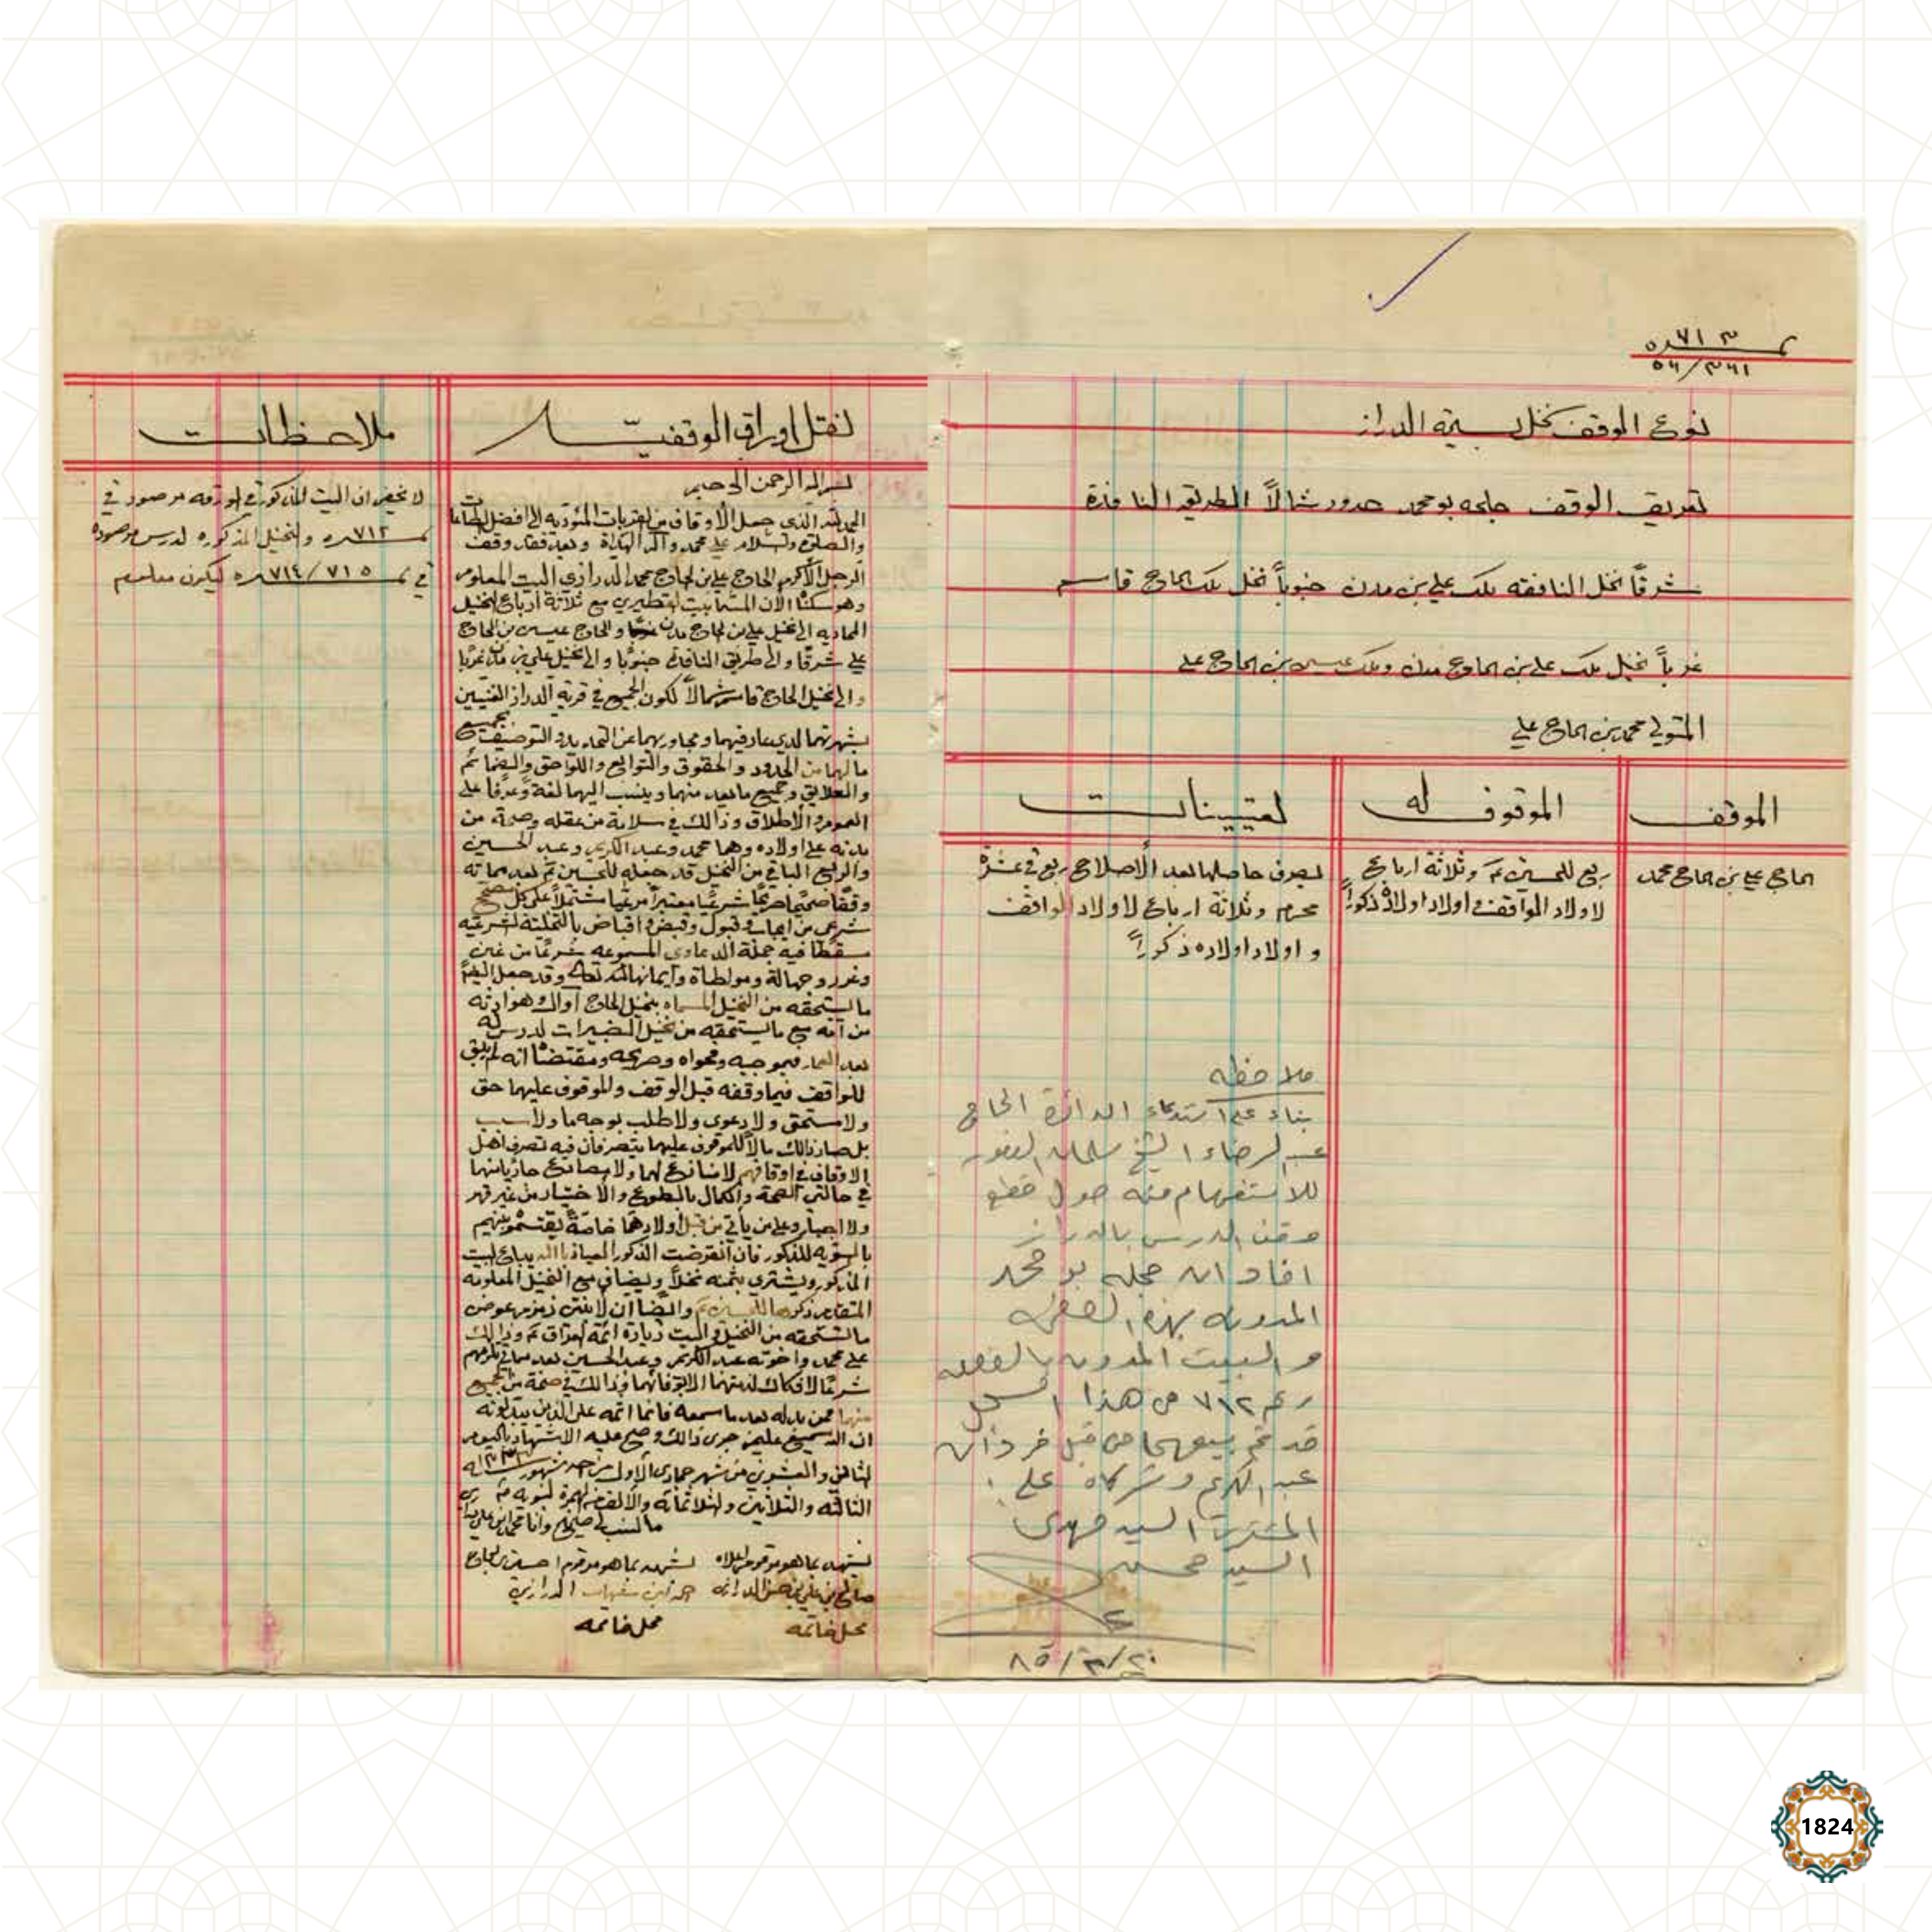 نمـ ٧١٣ـره
٥٦/٣٦١
نوع الوقف نخل بسيمة الدراز
تعريف الوقف جلحه بو محمد حدود شمالاً الطريق النافذة
شرقاً نخل النافقه ملك علي بن مدن جنوباً نخل ملك الحاج قاسم
غرباً نخيل ملك علي بن الحاج مدن وملك عيسى بن الحاج علي
المتولي محمد بن الحاج علي
الموقف
الحاج علي بن الحاج محمد
الموقوف له
ربع للحسين ع وثلاثة ارباع
لاولاد الموقف واولاد اولاده ذكوراً
تعيينات
يصرف حاصلها بعد الأصلاح ربع في عشرة
محرم وثلاثة ارباع لاولاد الواقف
و اولاد اولاده ذكوراً
ملاحظه
بناء على استدعاء الدائرة الحاج
عبد الرضاء الشيخ سلمان
للاستفهام منه حول قطع
وقف الدرس بالدراز
افاد ان جله بو محمد
المدونه بهذه الصفحه
والبيت المدون بالصفحه
رقم ٧١٢ من هذا السجل
قد تم بيعهما من قبل فردان
عبد الكريم وشركاه على
المشتري السيد مهدي
السيد محسن
٨٥/٣/٢٠
نقل اوراق الوقفيّة
بسم الله الرحمن الرحيم
الحمد لله الذي جعل الأوقاف من القربات المؤديه الى افضل الطاعات
والصلاة والسلام على محمد وآله الهداة وبعد فقد وقف
الرجل الأكرم الحاج علي بن الحاج محمد الدرازي البيت المعلوم
وهو سكناه الآن المسما بيت القطيري مع ثلاثة ارباع النخيل
المحاديه الى نخيل علي بن الحاج مدن والحاج عيسى بن الحاج
علي شرقا والى طريق النافذ جنوبا والى نخيل علي بن مدن غربا
والى نخيل الحاج قاسم شمالاً لكون الجميع في قرية الدراز الغنيين
بشهرتهما لدى عارفيهما ومجاوريهما عن التحديد والتوصيف بجميع
مالهما من الحدود والحقوق والتوابع واللواحق والضمائم
والعلايق وجميع ما يعد منهما وينسب اليهما لغة وعرفا على
العموم والأطلاق وذالك في سلامة من عقله وصحة من
بدنه على اولاده وهما محمد وعبد الكريم وعبد الحسين
والربع الباقي من النخيل قد جعله للحسين ع بعد مماته
وقفًا صحيحًا صريحًا شرعيًا معتبرًا مرعيًا مشتملاً على كل مصحح
شرعي من ايجاب وقبول وقبض واقباض بالتخلية الشرعيه
سقطا فيه جملة الدعاوى المسموعه شرعًا من غبن
وغرر وجهالة ومواطاة وايمانها لله تعالى وقد جعل ايضًا
ما يستحقه من النخيل المسماه بنخيل الحاج اوال وهو ارثه
من امه مع ما يستحقه من نخيل الضبيرات لدرس له
بعد العمار فبموجبه وفحواه وصريحه ومقتضاه انه لم يبق
للواقف فيما وقفه قبل الوقف والموقوف عليهما حق
ولا مستحق ولا دعوى ولا طلب بوجه ما ولا سبب
بل صار ذالك مالاً للموقوف عليهما يتصرفان فيه تصرف اهل
الاوقاف في اوقافهم لا منازع لهما ولا يصانع جاريا منها
في حالتي الصحة والكمال بالطوع والاختيار من غير قهر
ولا اجبار وعلى من يأتي من قبل اولادهما خاصةً يقتسموه بينهم
بالسويه للذكور فان انقرضت الذكور العياذ بالله يباع البيت
المذكور ويشترى بثمنه نخلاً ويضاف مع النخيل المعلومه
المتقادم ذكرها للحسين ع وايضًا ان لابنتي زمزم عوض
ما تستحقه من النخيل والبيت زيارة ائمة العراق ع وذالك
على محمد واخوته عبد الكريم وعبد الحسين بعد مماتي يلزمهم
شرعًا لا فكاك لذمتهما الا بوفائهما وذالك في صحة من الجميع
منهما فمن بدله بعد ما سمعه فانما اثمه على الذين يبدلونه
ان الله سميع عليم جرى ذالك وصح عليه الاشهاد باليوم
الثامن والعشرين من شهر جمادى الأول من احد شهور سنة ١٣٣٣
الثالثه والثلاثين والثلاثمائة والألف من الهجرة النبويه
ما نسب لي صحيح وانا محمد ابن علي
يشهد بما هو مرقوم اعلاه
صالح بن علي بن حسن الدرازي
محل خاتمه
يشهد بما هو مرقوم احسين بن الحاج
احمد ابن شهاب الدرازي
محل خاتمه
ملاحظات
لا يخفى ان البيت المذكور في الورقه مرصود في
نمـ ٧١٢ـره والنخيل المذكوره لدرس مرصوده
في نمـ ٧١٤/٧١٥ـره ليكون معلوم
1824